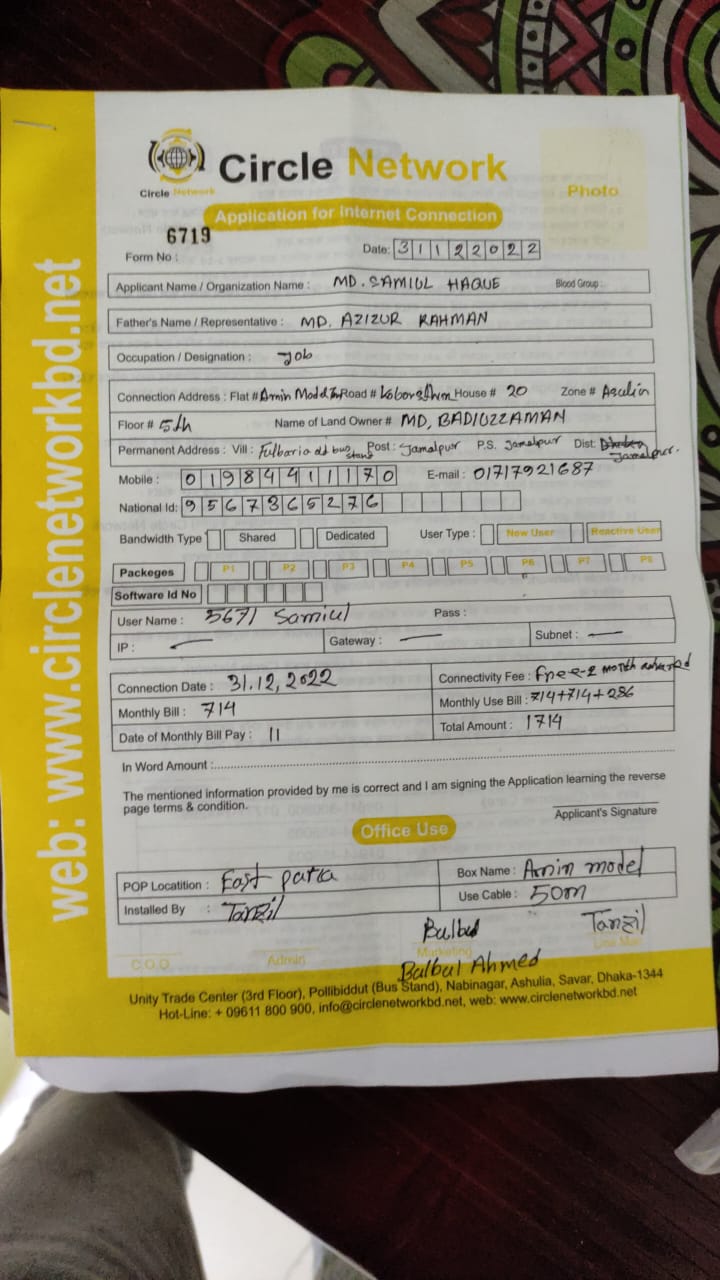 web: www.circlenetworkbd.net
Circle Network
Circle Network
Photo
Application for Internet Connection
6719
Form No :
Date: 31122022
Applicant Name / Organization Name : MD. SAMIUL HAQUE Blood Group :
Father's Name / Representative : MD. AZIZUR RAHMAN
Occupation / Designation : Job
Connection Address : Flat # Amin Road # House # 20 Zone #
Floor # 5th Name of Land Owner # MD, BADIUZZAMAN
Permanent Address : Vill : Fulbaria bus stand Post : Jamalpur P.S. Jamalpur Dist: Jamalpur.
Mobile : 01984411170 E-mail : 01717921687
National Id: 9567365276
Bandwidth Type Shared Dedicated User Type : New User Reactive User
Packeges P1 P2 P3 P4 P5 P6 P7 P8
Software Id No
User Name : 5671 Samiul Pass :
IP : — Gateway : — Subnet : —
Connection Date : 31.12,2022 Connectivity Fee : Free-2 month
Monthly Bill : 714 Monthly Use Bill : 714+714+286
Date of Monthly Bill Pay : 11 Total Amount : 1714
In Word Amount :
The mentioned information provided by me is correct and I am signing the Application learning the reverse
page terms & condition.
Applicant's Signature
Office Use
POP Locatition : East para Box Name : Amin model
Installed By : Tanzil Use Cable : 50m
Bulbul Tanzil
C.O.O. Admin Marketing Line Man
Bulbul Ahmed
Unity Trade Center (3rd Floor), Pollibiddut (Bus Stand), Nabinagar, Ashulia, Savar, Dhaka-1344
Hot-Line: + 09611 800 900, info@circlenetworkbd.net, web: www.circlenetworkbd.net